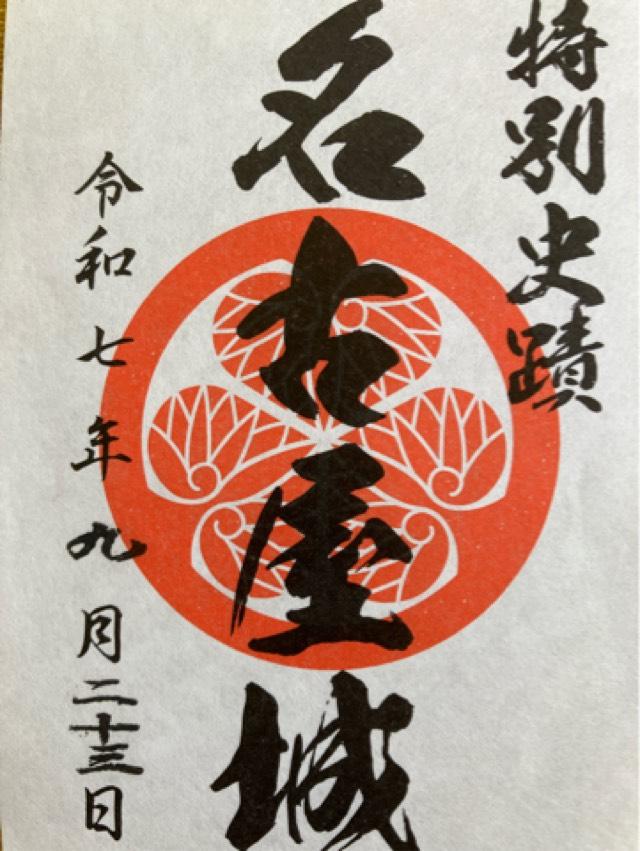 特別史蹟
名古屋城
令和七年九月二十三日